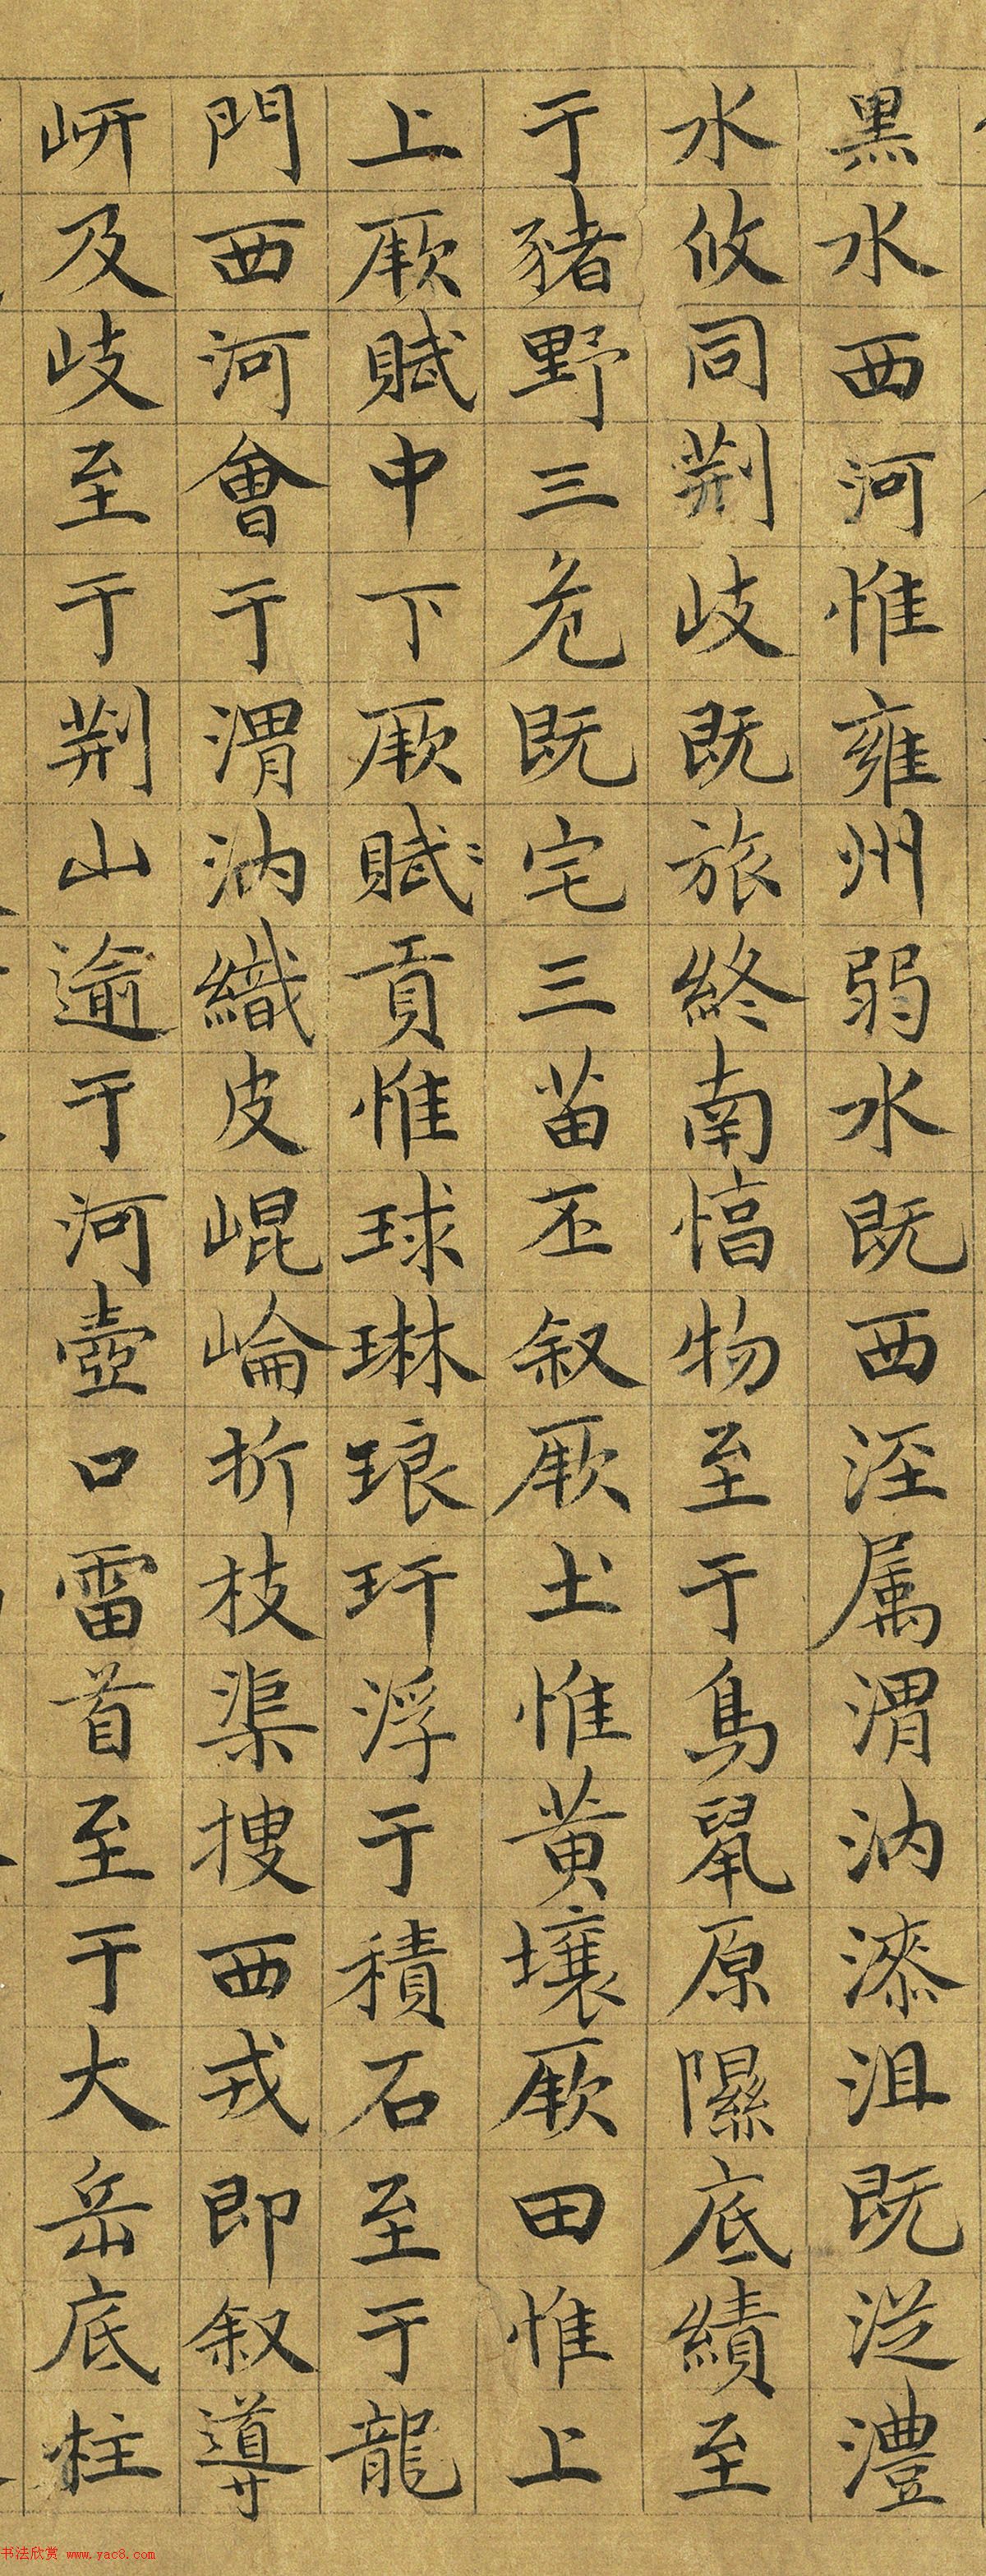 黑水西河惟雍州弱水既西涇属渭汭漆沮既従澧
水攸同荆岐既旅終南惇物至于鳥鼠原隰底績至
于豬野三危既宅三苗丕叙厥土惟黄壤厥田惟上
上厥賦中下厥賦貢惟球琳琅玕浮于積石至于龍
門西河會于渭汭織皮崐崘折枝渠搜西戎即叙導
岍及岐至于荆山逾于河壺口雷首至于大岳底柱
书法欣赏 www.yac8.com